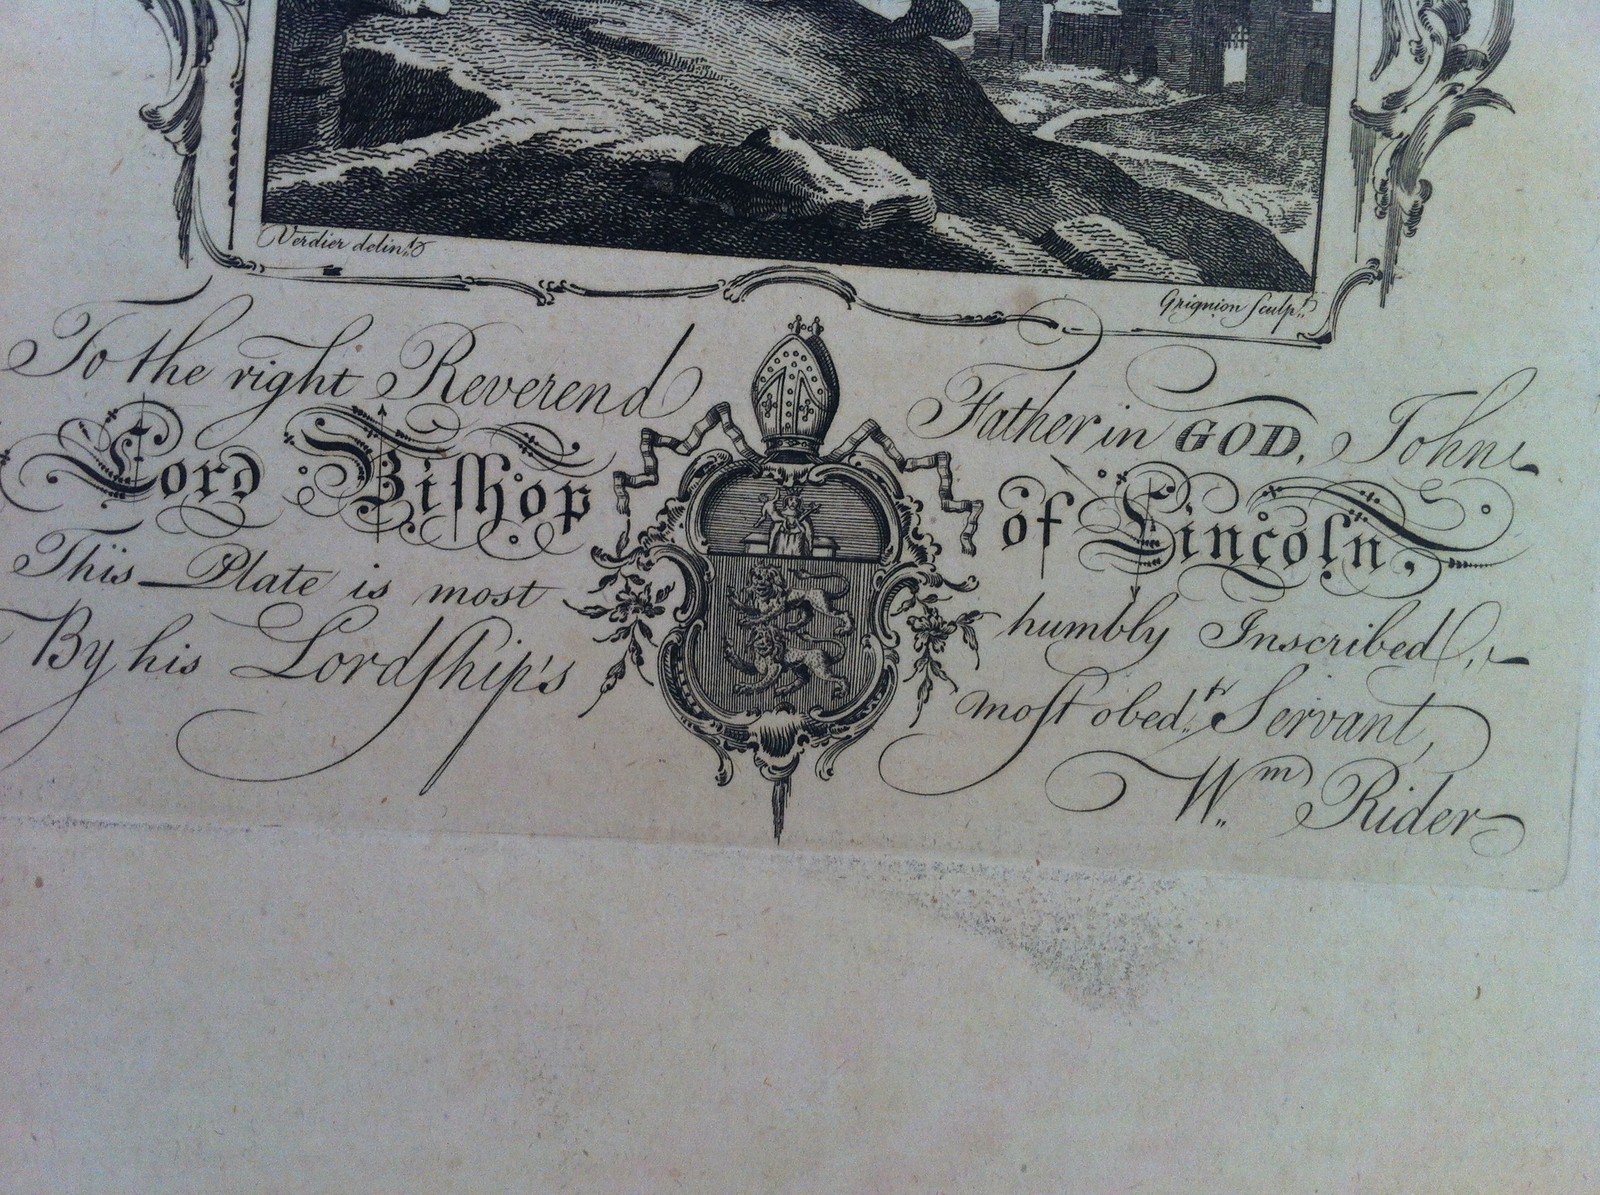 Verdier delin.t
Grignion Sculp.t
To the right Reverend Father in GOD, John
Lord Biſhop of Lincoln,
This Plate is most humbly Inscribed,
By his Lordſhip's moſt obed.t Servant,
W.m Rider